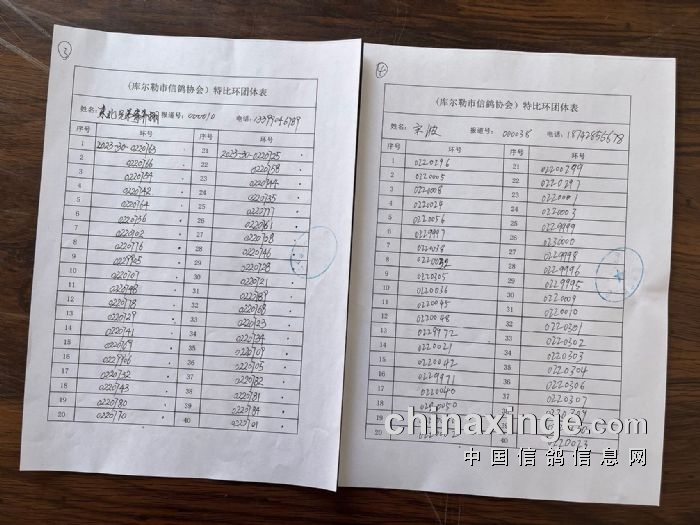 3
(库尔勒市信鸽协会) 特比环团体表
姓名: 报道号: 000010 电话: 13399046789
序号 环号 序号 环号
1 2023-30-0220763 21 2023-30-0220725
2 0220766 22 0220758
3 0220754 23 0220744
4 0220742 24 0220735
5 0220764 25 0220797
6 0220756 26 0220781
7 0220702 27 0220738
8 0220776 28 0220746
9 0229905 29 0220728
10 0220707 30 0220721
11 31 0220789
12 0220778 32 0220768
13 0220729 33 0220723
14 0220741 34 0220734
15 0220769 35 0220709
16 0229906 36 0220705
17 0220732 37 0220782
18 0220743 38 0220791
19 0220780 39 0220784
20 0220770 40 0220701
4
(库尔勒市信鸽协会) 特比环团体表
姓名: 宋波 报道号: 000038 电话: 18742855678
序号 环号 序号 环号
1 0220296 21 02200299
2 0220005 22 0220297
3 0220008 23 0220001
4 0220029 24 0220003
5 0220056 25 0229999
6 26 0220000
7 0220038 27 0229998
8 28 0229996
9 0220305 29 0229995
10 0220036 30 0220009
11 0220045 31 0220010
12 0220048 32 0220301
13 0229972 33 0220302
14 0220021 34 0220303
15 0220042 35 0220304
16 0229971 36 0220306
17 0220040 37 0220307
18 0220050 38
19
20 40 0220023
chinaxinge.com
中国信鸽信息网